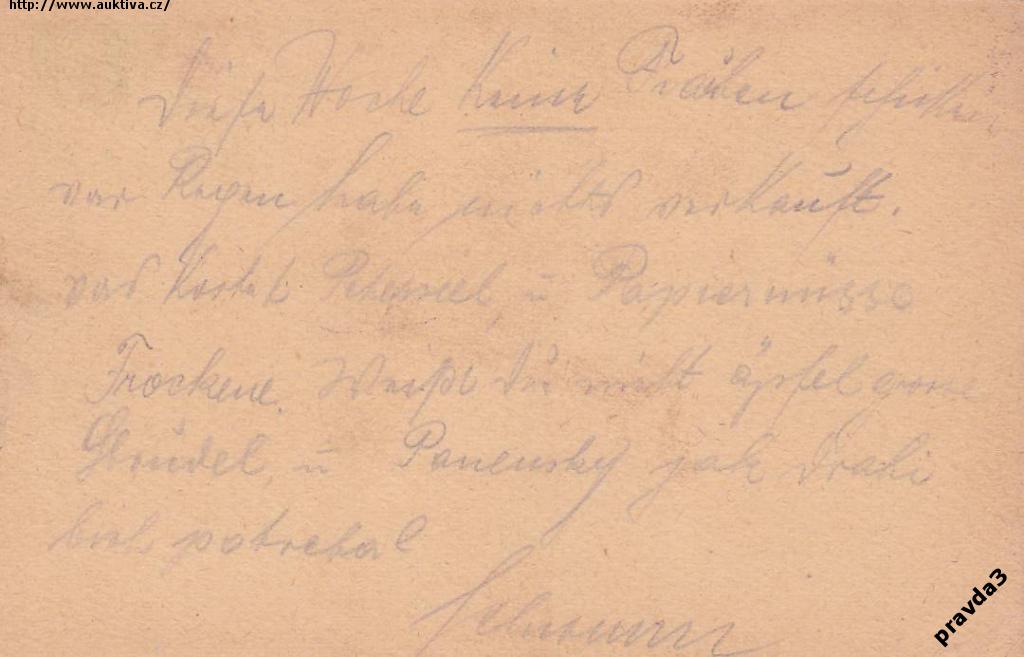 http://www.auktiva.cz/
Diese Woche Keine schicken
war Regen habe nichts verkauft.
was kostet Petersiel, u Papiernüsse
Trockene. Weißt Du nicht äpfel grosse
Strudel, u Panensky jak drahi
bich potreboval
pravda3